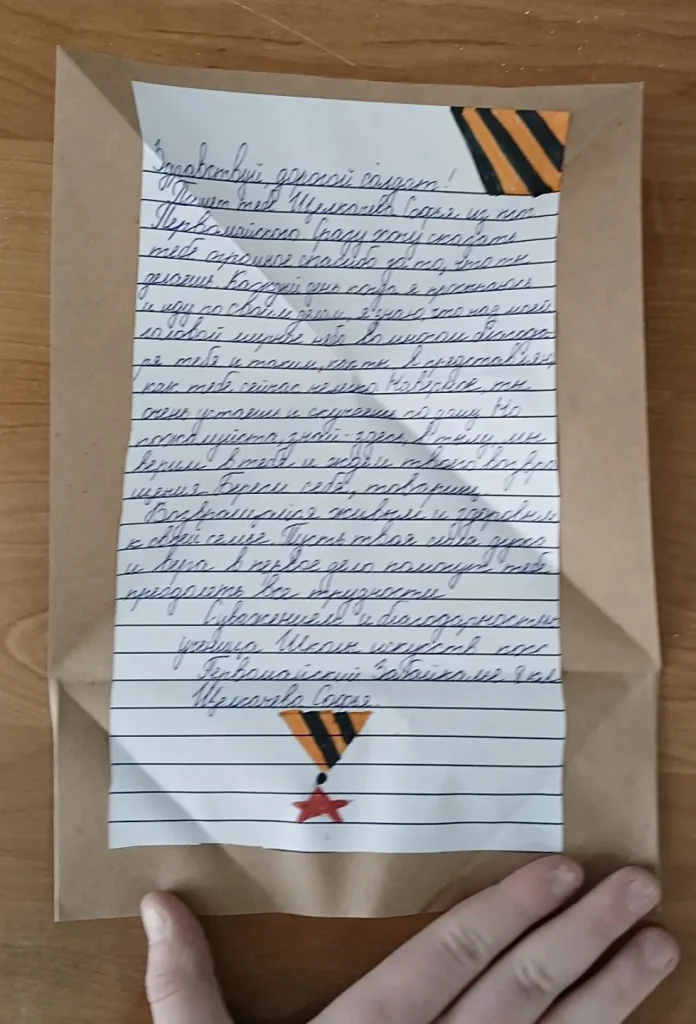 Здравствуй, дорогой солдат!
Пишет тебе Щелкачева Софья из пгт
Первомайского Сразу хочу сказать
тебе огромное спасибо за то, что ты
делаешь. Каждый день когда я просыпаюсь
и иду по своим делам, я знаю что над моей
головой мирное небо во многом благода-
ря тебе и таким, как ты. Я представляю,
как тебе сейчас нелегко. Наверное, ты
очень устаешь и скучаешь по дому. Но
пожалуйста, знай - здесь, в тылу, мы
верим в тебя и ждем твоего возвра-
щения. Береги себя, товарищ.
Возвращайся живым и здоровым
к своей семье. Пусть твоя сила духа
и вера в дело помогут тебе
преодолеть все трудности
С уважением и благодарностью
ученица Школы искусств
Первомайский Забайкалье 8 кл
Щелкачева Софья.